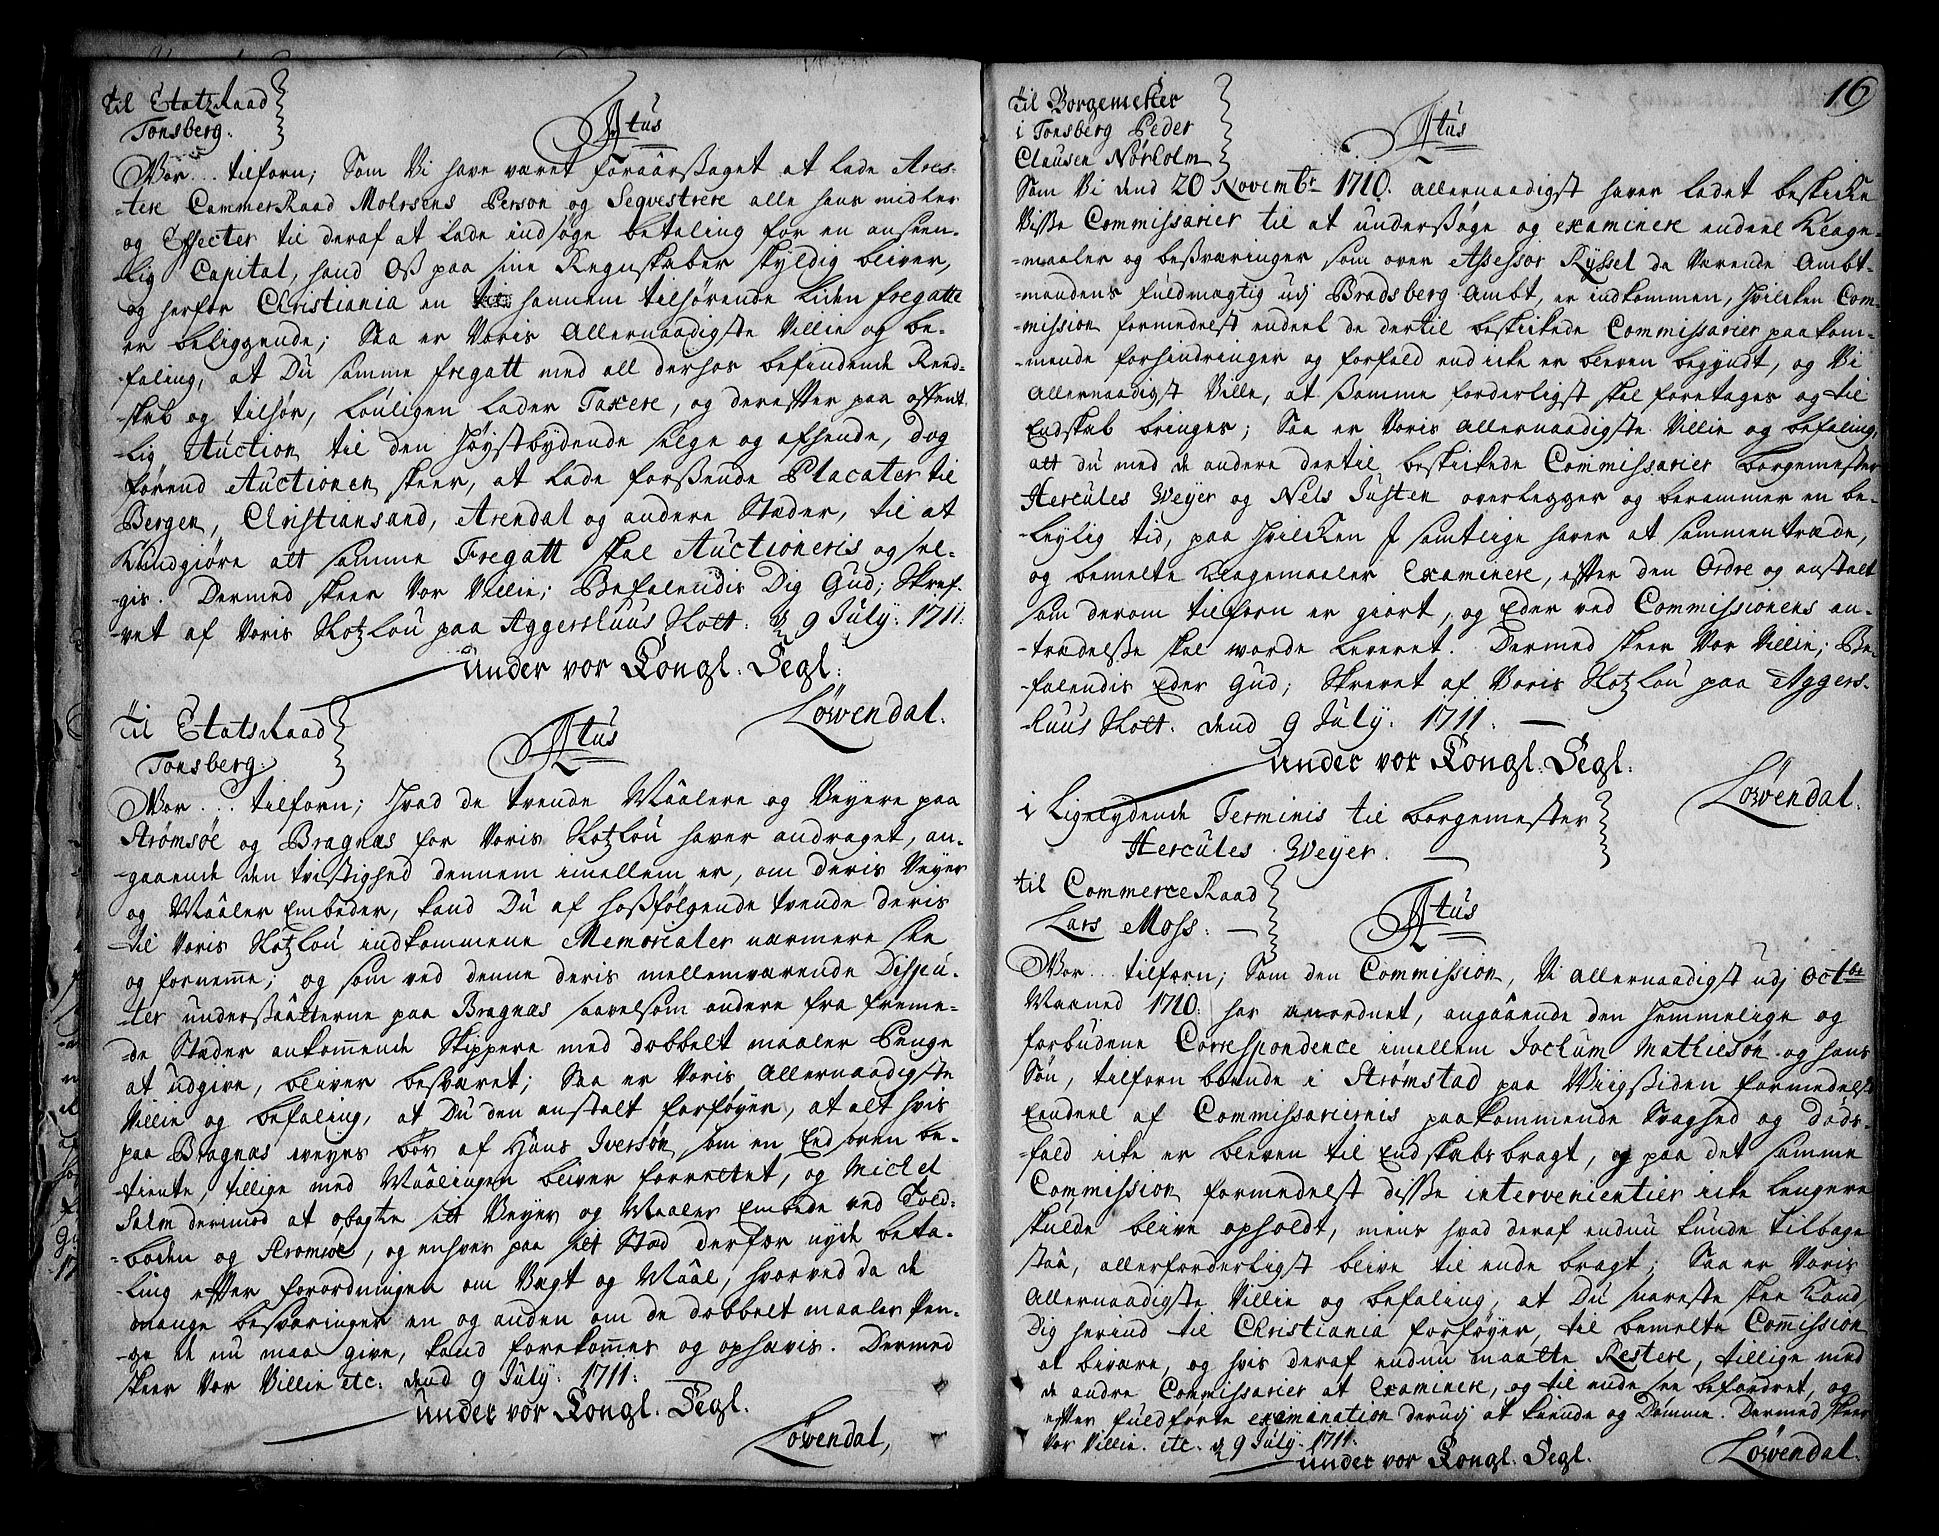 til EtatzRaad
Tonsberg.
Ftus
Vor.. tilforn; Som Vi have været foraarsaget at lade Ares-
-tere CammerRaad Molrsens Person og Seqvestrere alle hans midler
og Effecter til deraf at lade indsøge betaling for en anseen-
-lig Capital, hand Oss paa sine Regnskaber skyldig bliver,
og herfor Christiania en hannem tilhørende liden fregatte
er beliggende; Saa er Voris Allernaadigste Villie og be-
faling, at Du samme fregatt med all derhos befindende Reed-
-skab og tilhør, louligen lader Taxere, og derefter paa offent
-lig Auction til den Høystbydende selge og afhende, dog
førend Auctionen skeer, at lade forsende Placater til
Bergen, Christiansand, Arendal og andere Stæder, til at
Kundgiøre att samme Fregatt skal Auctioneris og sel-
-gis. Dermed skeer Vor Villie; Befalendis Dig Gud; Skref-
-vet af Voris Slotzlou paa Aggershuus Slott. d 9 July. 1711.
under vor Kongl. Segl.
Løwendal.
til EtatsRaad
Tonsberg.
Ftus
Vor... tilforn; Hvad de trende Maalere og Veyere paa
Strømsøe og Bragnæs for Voris Slotzlou haver andraget, an-
-gaaende den tvistighed dennem imellem er, om deris Veyer
og Maaler Embeder, kand Du af hossfølgende trende deris
til Voris Slotzlou indkommene Memorialer nærmere see
og fornemme; og som ved denne deris mellemværende Dispu-
-ter undersaatterne paa Bragnæs saavelsom andere fra fremme-
-de Stæder ankommende Skippere med dobbelt maaler Penge
at udgive, bliver besværet; Saa er Voris Allernaadigste
Villie og befaling, at Du den anstalt forføyer, at alt hvis
paa Bragnæs veyes bør af Hans Iversøn, som en Eedsoren be-
-tiente, tillige med Maalingen bliver forrettet, og Michel
Salm dermod at obagte sitt Veyer og Maaler Embede ved Told-
-boden og Strømsøe, og enhver paa sitt Stæd derfor nyde beta-
-ling efter forordningen om Vægt og Maal, hvorved da de
mange besværinger en og anden om de dobbelt maaler Pen-
-ge de nu maa give, kand forekommes og ophævis. Dermed
skeer Vor Villie etc. dend 9 July. 1711.
under vor Kongl. Segl.
Løwendal,
16
til Borgemester
i Tonsberg Peder
Clausen Nørholm
Ftus
Som Vi dend 20 Novembr 1710. allernaadigst haver ladet beskicke
Visse Commissarier til at undersøge og examinere endeel Klage-
-maaler og besværinger som over Assessor Ryssel da værende Ambt-
-mandens fuldmægtig udj Bradsberg Ambt, er indkommen, hvilcken Com-
-mission formedelst endeel de dertil beskickede Commissarier paakom-
-mende forhindringer og forfald end icke er bleven begyndt, og Vi
Allernaadigst Ville, at samme forderligst skal foretages og til
Endskab bringes; Saa er Voris allernaadigste Villie og befaling,
att du med de andere dertil beskickede Commissarier Borgemester
Hercules Weyer og Nels Justen overlegger og berammer en be-
-leylig tid, paa hvilcken I samtlige haver at sammentræde,
og bemelte Klagemaaler Examinere, efter den Ordre og anstalt
som derom tilforn er giort, og Eder ved Commissionens an-
-trædelse skal vorde leveret. Dermed skeer Vor Villie; Be-
-falendis Eder Gud; Skrevet af Voris Slotzlou paa Aggers-
-huus Slott. dend 9 July. 1711.
under vor Kongl. Segl.
Løwendal.
i Ligelydende Terminis til Borgemester
Hercules Weyer.
til CommerceRaad
Lars Moss.
Ftus
Vor... tilforn; Som den Commission, Vi allernaadigst udj Octbr
Maaned 1710. har anordnet, angaaende den hemmelige og
forbudene Correspondence imellem Jochum Mathiesøn og hans
Søn, tilforn boende i Strømstad paa Viigsiden formedelst
Endeel af Commissariernis paakommende svaghed og døds-
-fald icke er bleven til Endskabs bragt, og paa det samme
Commission formedelst disse intervenientier icke lengere
skulde blive opholdt, mens hvad deraf endnu kunde tilbage
staa, allerforderligst blive til ende bragt; Saa er Voris
Allernaadigste Villie og befaling, at Du snareste skee kand
Dig herind til Christiania forføyer, til bemelte Commission
at bivære, og hvis deraf endnu maatte Restere, tillige med
de andre Commissarier at Examinere, og til ende see befordret, og
efter fuldførte examination derudj at kiende og Dømme. Dermed skeer
Vor Villie. etc. d 9 July. 1711.
under vor Kongl. Segl.
Løwendal.